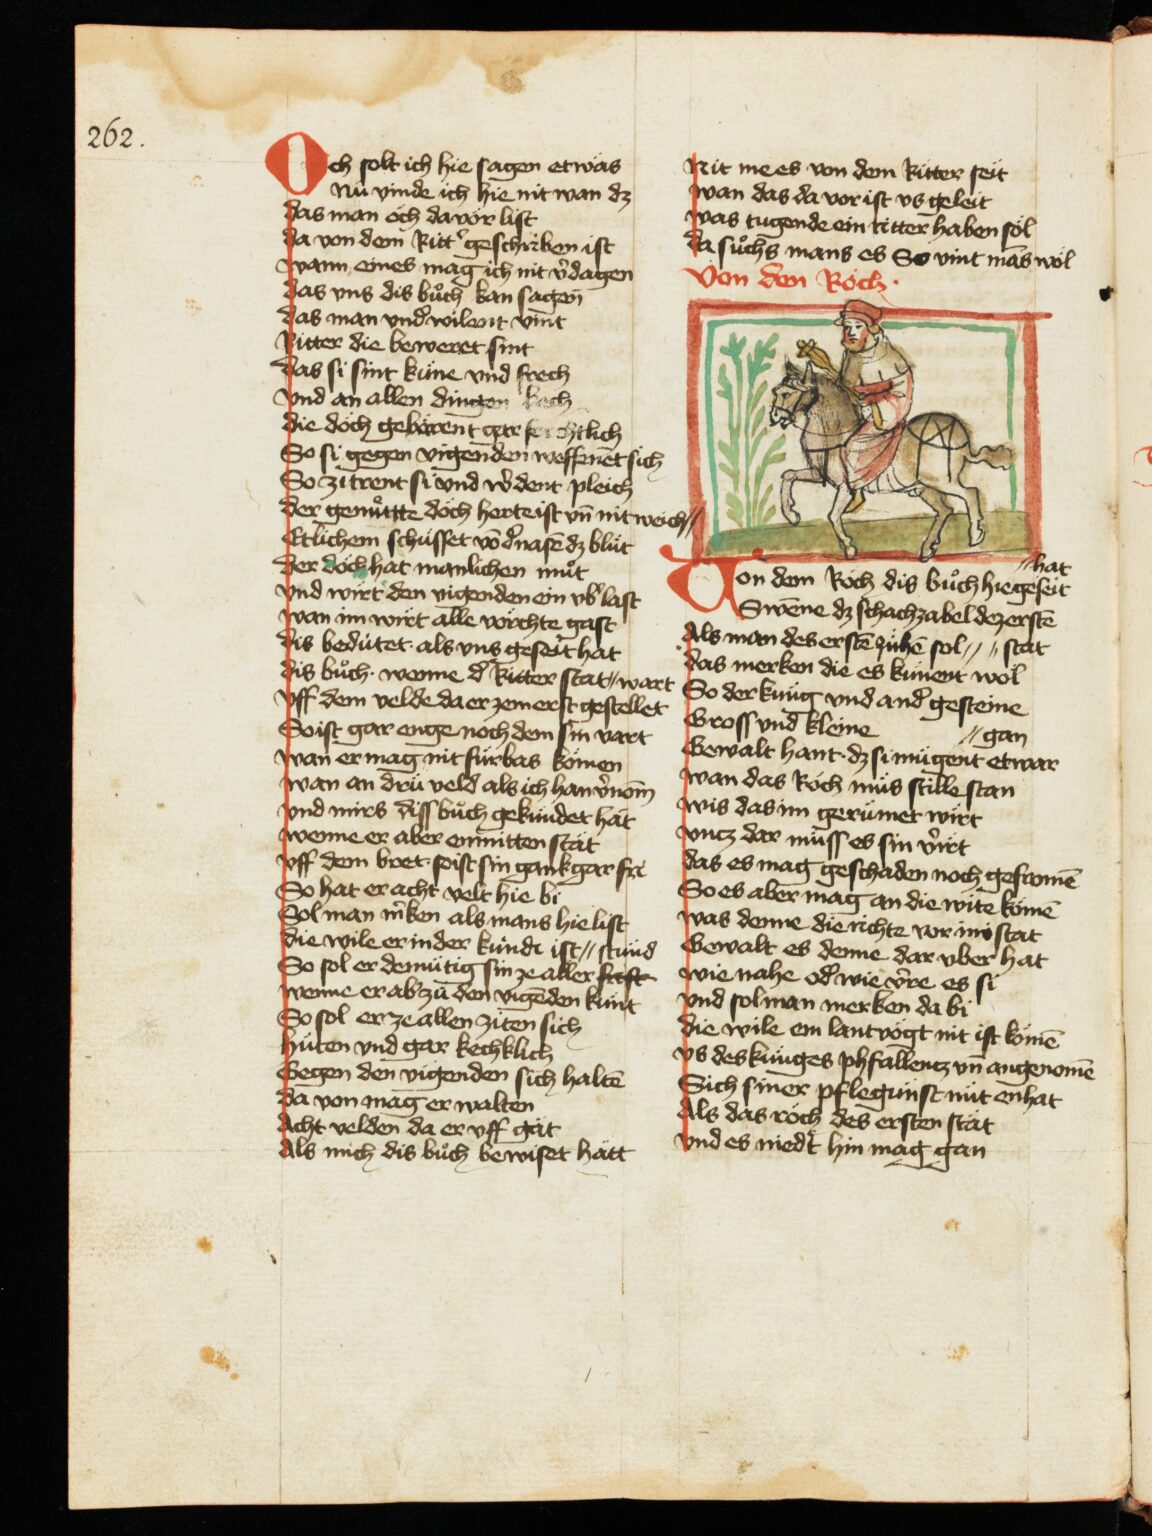 262.
Och solt ich hie sagen etwäs
Nü vinde ich hie nit wan dz
das man öch da vor list
da von dem Ritt' geschriben ist
wann eines mag ich nit v'dagen
das vns dis bůch kan sagen
das man vnd'wilent vint
Ritter die beweret sint
das si sint küne vnd frech
vnd an allen dingen kech
die döch gebärent gar forchtlich
So si gegen vigenden weffenet sich
So zitrent si vnd w'dent pleich
der gemůtte döch herte ist vn̄ nit weich //
Etlichem schüsset vō d' nasē dz blüt
der döch hat manlichen můt
vnd wirt den vigenden ein vb'last
wan im wirt alle vörchte gast
dis bedütet als vns geseit hat
dis bůch. wenne d' Ritter stat // wart
vff dem velde da er zem erst gestellet
So ist gar enge noch dem sin vart
wan er mag nit fürbas kömen
wan an drü veld als ich han v'nom̄
vnd mirs diss bůch gekündet hat
wenne er aber enmitten stät
vff dem bret. so ist sin gank gar fri
So hat er acht velt hie bi
Sol man m'ken als mans hie list
die wile er in der kündi ist // stund
So sol er demütig sin ze aller frist
wenne er ab' zu den vigēden kunt
So sol er ze allen ziten sich
hüten vnd gar kechklich
Gegen den vigenden sich haltē
da von mag er walten
Acht velden da er vff gät
Als mich dis bůch bewiset hätt
Nit me es von dem Ritter seit
wan das da vor ist vs geleit
was tugende ein ritter haben söl
da sůchs mans es So vint mās wöl
Von den Röch.
// hat
Von dem Röch dis bůch hie geseit
Swēne dz schachzabel dez erstē
Als man des erstē zühē sol // // stat
das merken die es künent wöl
So der küng vnd and' gesteine
Gross vnd kleine // gan
Gewalt hant. dz si mügent etwar
wan das Röch müs stille stan
wis das im gerümet wirt
vncz dar müss es sin v'irt
das es mag geschaden noch gefromē
So es aber mag an die wite kömē
was denne die richte vor im stat
Gewalt es denne dar vber hat
wie nahe od' wie v're es si
vnd sol man merken da bi
die wile ein lantvögt nit ist kömē
vs des künges phfallencz vn̄ angenomē
Sich siner pflegünst nüt enhat
Als das röch des ersten stät
vnd es nied't hin mag gan